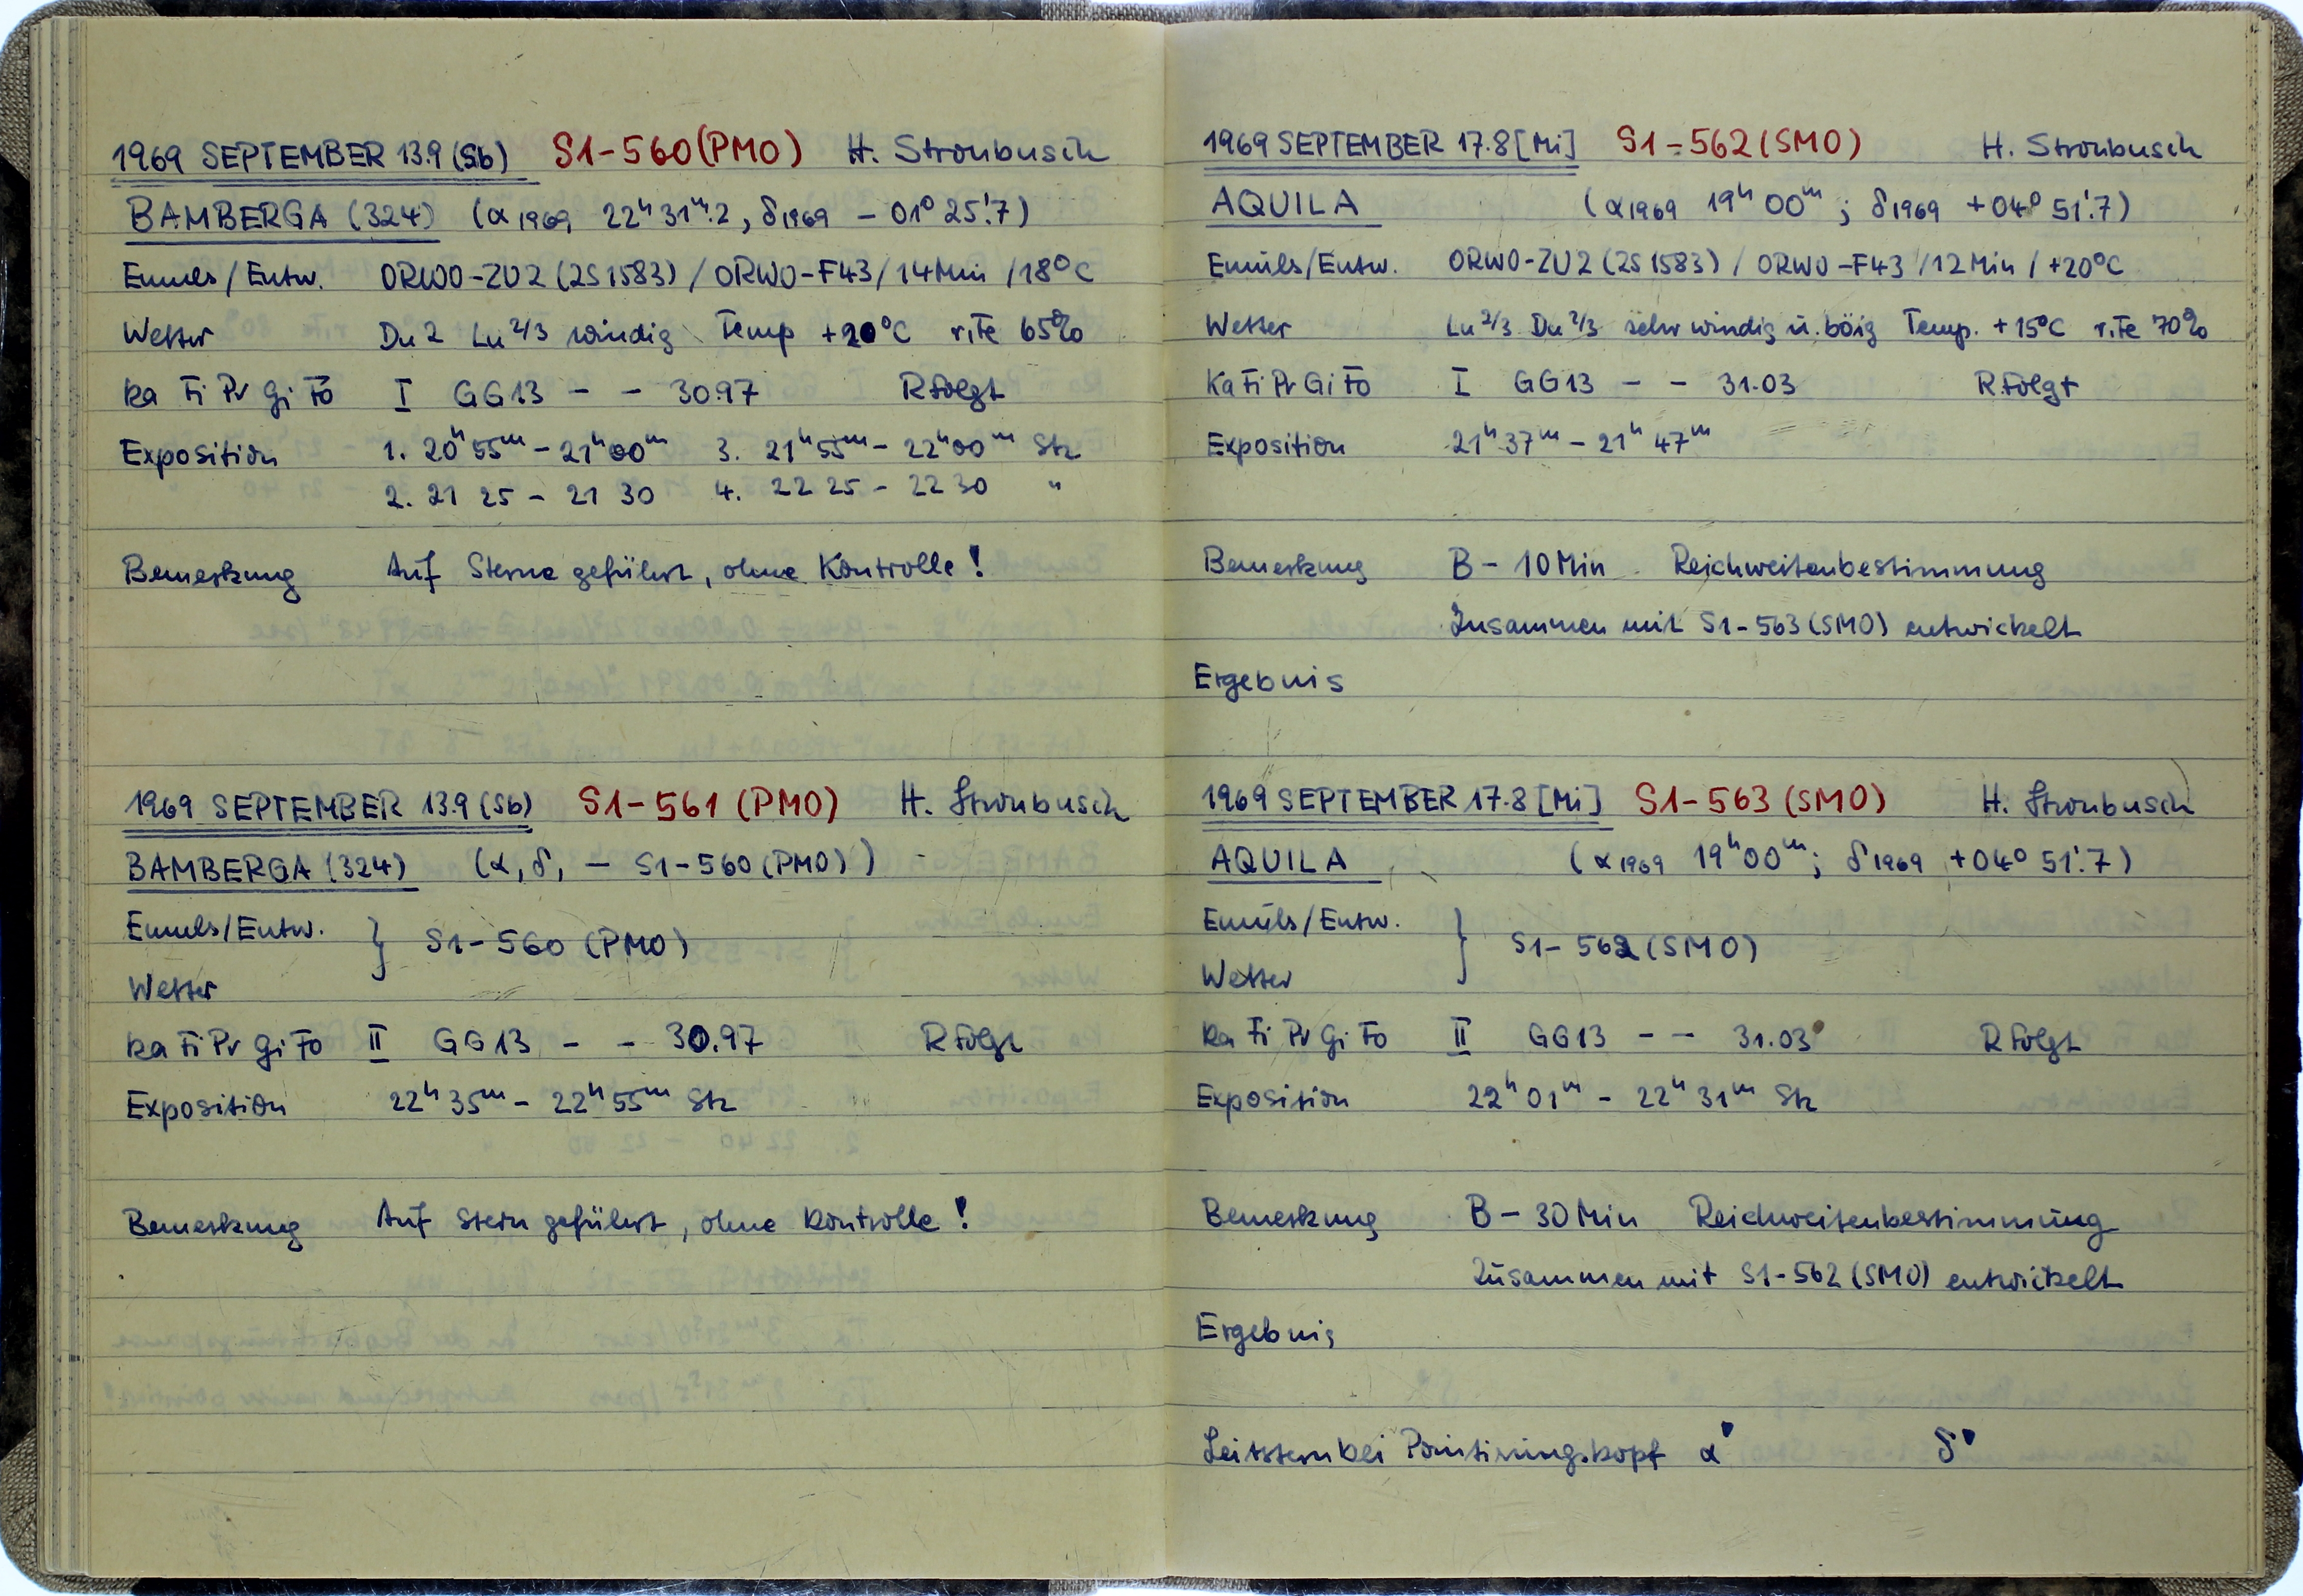 1969 SEPTEMBER 13.9 (Sb) S1-560 (PMO) H. Stroubusch
BAMBERGA (324) (α1969 22ʰ 31ᵐ.2, δ1969 - 01° 25'.7)
Emuls/Entw. ORWO-ZU2 (2S1583) / ORWO-F43 / 14 Min / 18°C
Wetter Du 2 Lu 2/3 windig Temp +20°C r.Fe 65%
Ka Fi Pr Gi Fo I GG13 - - 30.97 R folgt
Exposition 1. 20ʰ 55ᵐ - 21ʰ 00ᵐ 3. 21ʰ 55ᵐ - 22ʰ 00ᵐ Stz
2. 21 25 - 21 30 4. 22 25 - 22 30 "
Bemerkung Auf Sterne geführt, ohne Kontrolle!
1969 SEPTEMBER 13.9 (Sb) S1-561 (PMO) H. Stroubusch
BAMBERGA (324) (α, δ, - S1-560 (PMO))
Emuls/Entw. } S1-560 (PMO)
Wetter
Ka Fi Pr Gi Fo II GG13 - - 30.97 R folgt
Exposition 22ʰ 35ᵐ - 22ʰ 55ᵐ Stz
Bemerkung Auf Stern geführt, ohne Kontrolle!
1969 SEPTEMBER 17.8 [Mi] S1-562 (SMO) H. Stroubusch
AQUILA (α1969 19ʰ 00ᵐ; δ1969 +04° 51'.7)
Emuls/Entw. ORWO-ZU2 (2S1583) / ORWO-F43 / 12 Min / +20°C
Wetter Lu 2/3 Du 2/3 sehr windig u. böig Temp. +15°C r.Fe 70%
Ka Fi Pr Gi Fo I GG13 - - 31.03 R folgt
Exposition 21ʰ 37ᵐ - 21ʰ 47ᵐ
Bemerkung B - 10 Min Reichweitenbestimmung
Zusammen mit S1-563 (SMO) entwickelt
Ergebnis
1969 SEPTEMBER 17.8 [Mi] S1-563 (SMO) H. Stroubusch
AQUILA (α1969 19ʰ 00ᵐ; δ1969 +04° 51'.7)
Emuls/Entw. } S1-562 (SMO)
Wetter
Ka Fi Pr Gi Fo II GG13 - - 31.03 R folgt
Exposition 22ʰ 01ᵐ - 22ʰ 31ᵐ Stz
Bemerkung B - 30 Min Reichweitenbestimmung
Zusammen mit S1-562 (SMO) entwickelt
Ergebnis
Leitstern bei Pointierungskopf α' δ'